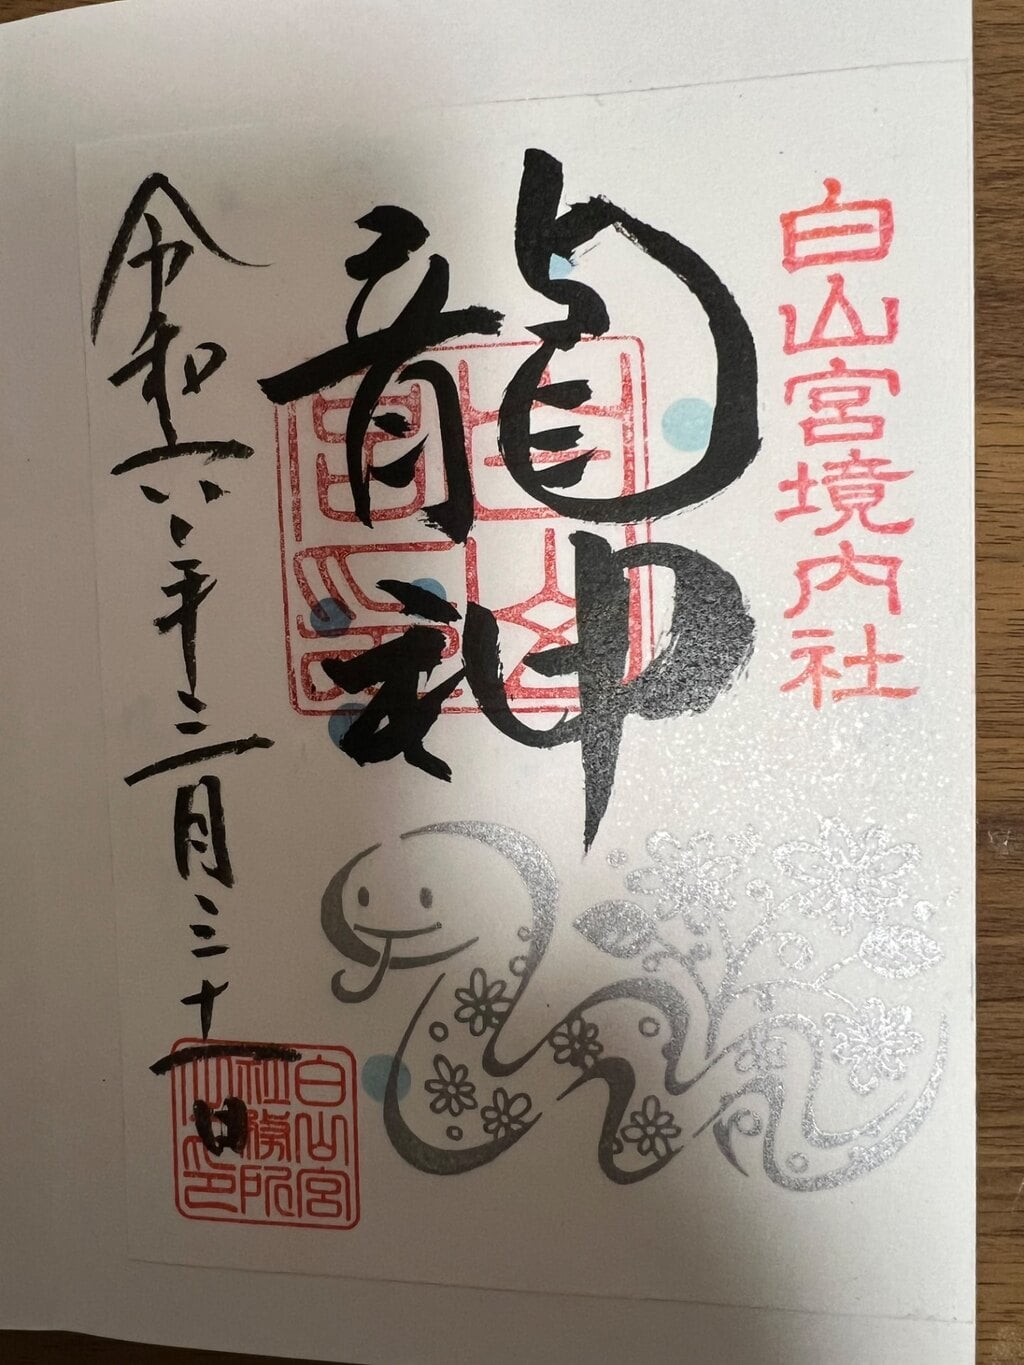 白山宮境内社
龍神
白山宮印
令和六年三月三十一日
白山宮
社務所
之印